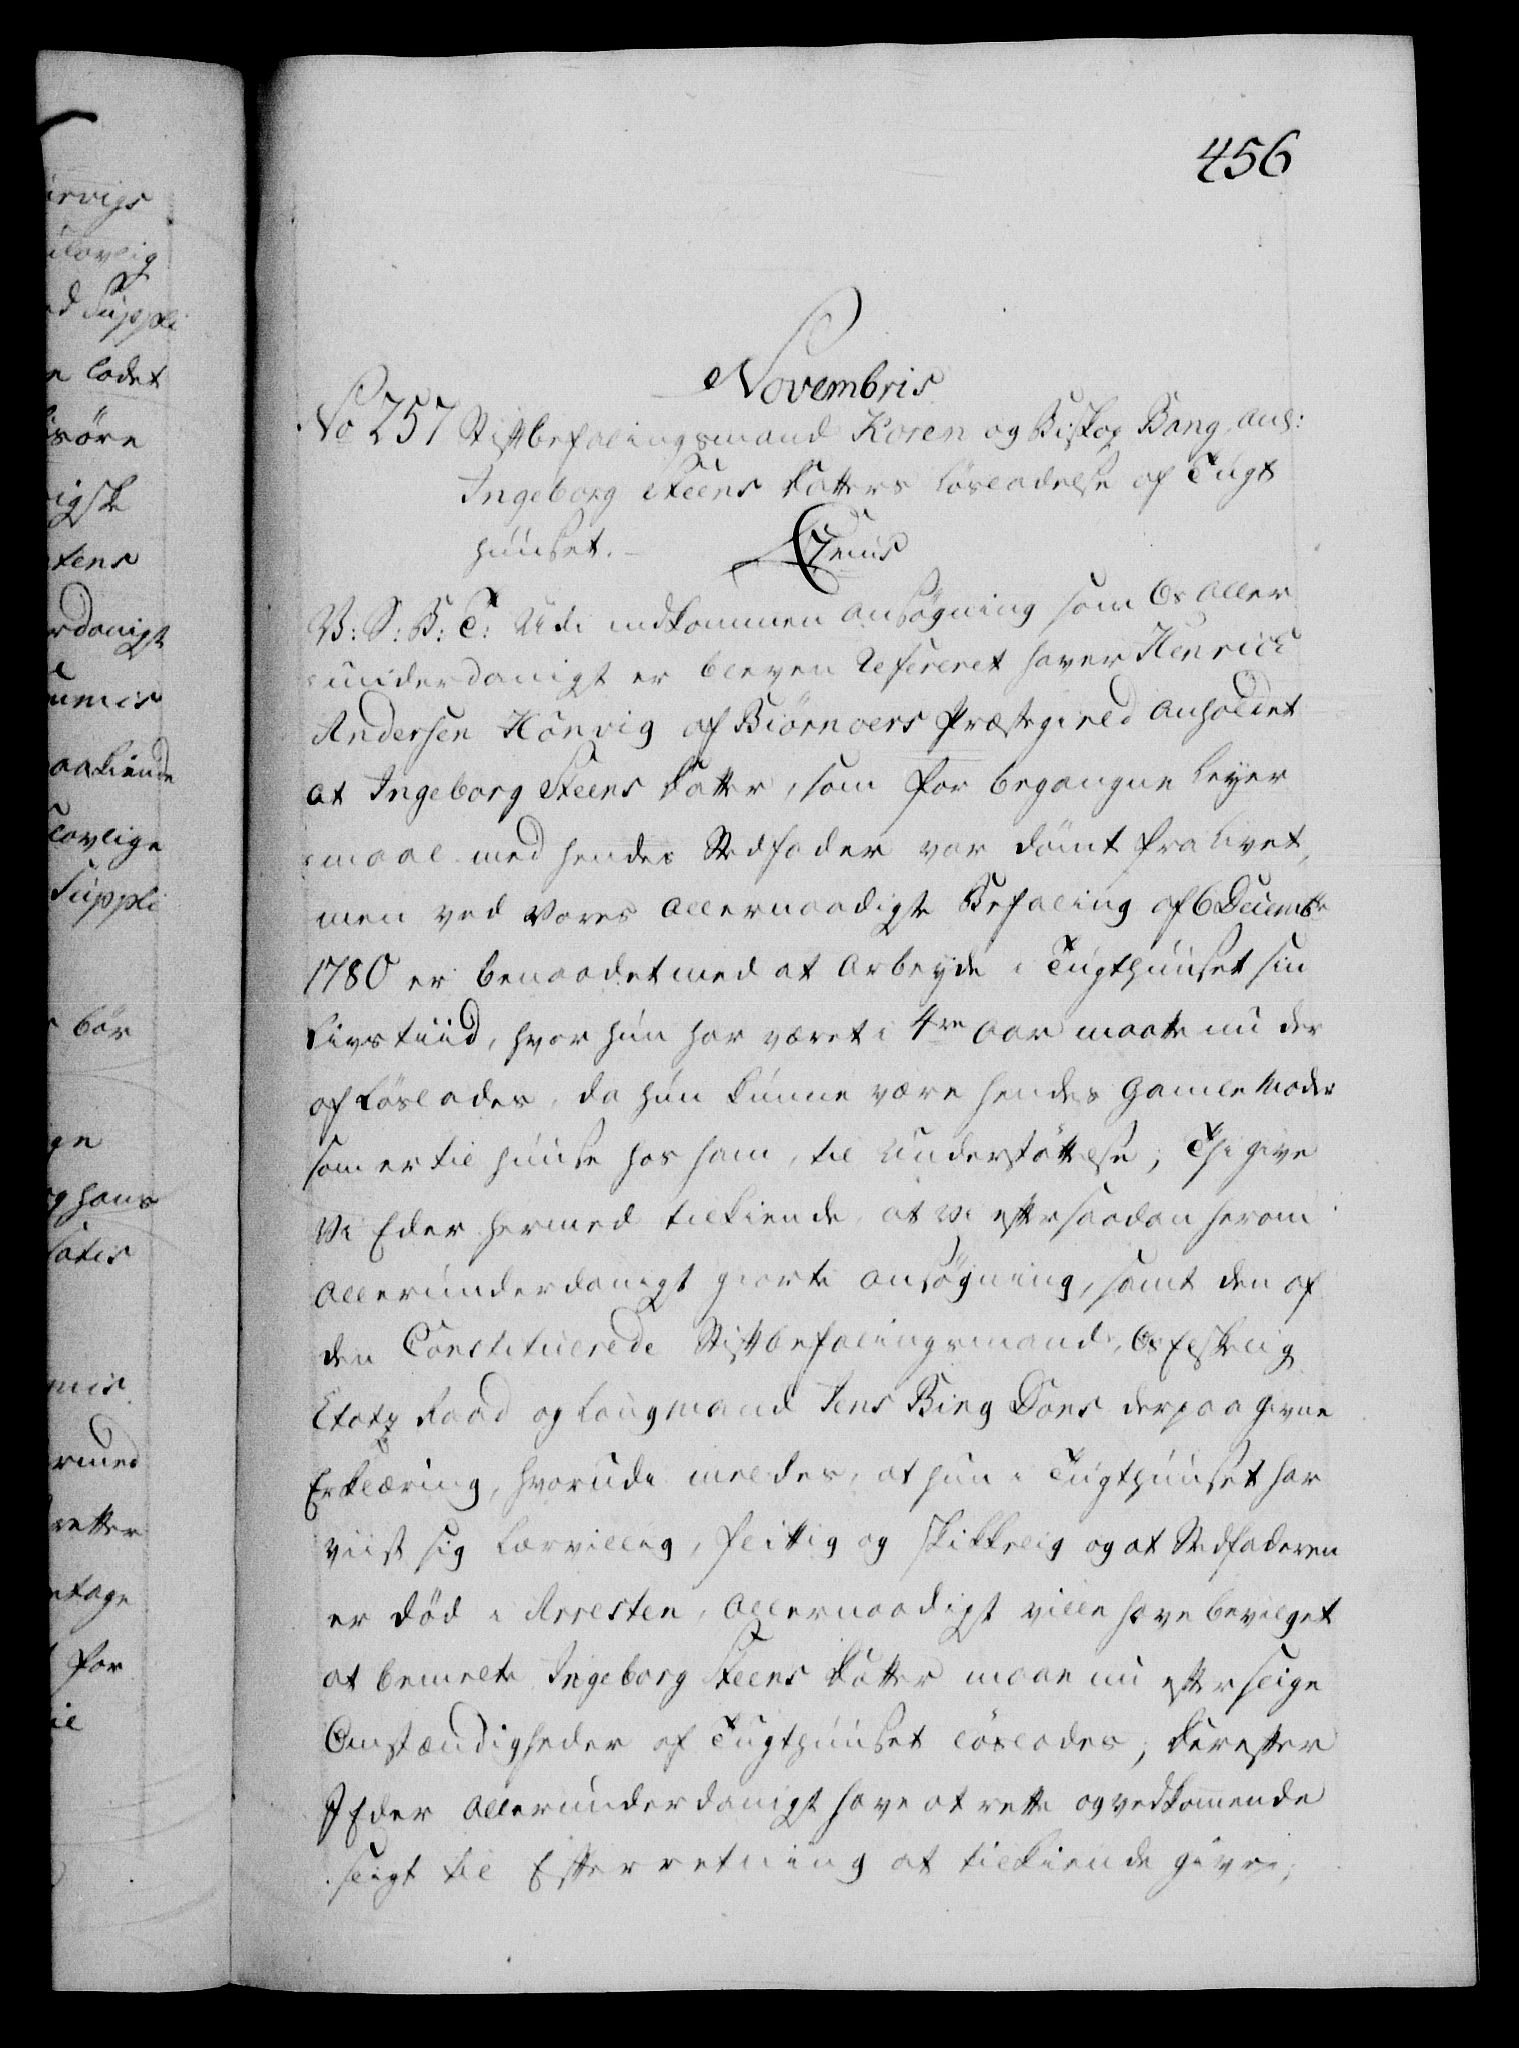 456
Novembris
No 257 Stiftbefalingsmand Koren og Biskop Bang, anl:
Ingeborg Steens Datters Løsladelse af Tugt
huuset.
V: S: G: T: Udi indkommen Ansøgning som Os Aller
underdanigst er bleven refereret haver Henrich
Andersen Hönvig af Biörnoers Præstegield anholdet
at Ingeborg Steens Datter, som for begangne Leyer
maal med hendes Stedfader var dömt fra Livet,
men ved Vores Allernaadigste Befaling af 6 Decembr
1780 er benaadet med at arbeyde i Tugthuuset sin
Livs tiid, hvor hun har været i 4re Aar maatte nu der
af Löslades, da hun kunne være hendes gamle Moder
som er til huuse hos ham, til Understöttelse; Thi give
Vi Eder hermed tilkiende, at Vi efter saadan herom
Allerunderdanigst giorte Ansögning, samt den af
den Constituerede Stiftbefalingsmand, Os Elskelig
Etatz Raad og Laugmand Jens Bing Dons derpaa givne
Erklæring, hvorudi meldes, at hun i Tugthuuset har
viist sig lærvillig, flittig og skikkelig og at Stedfaderen
er död i Arresten, Allernaadigst ville have bevilget
at bemelte Ingeborg Steens Datter maae nu efter slige
Omstændigheder af Tugthuuset löslades; Derefter
I Eder Allerunderdanigst have at rette og vedkommende
sligt til Efterretning at tilkiende give;